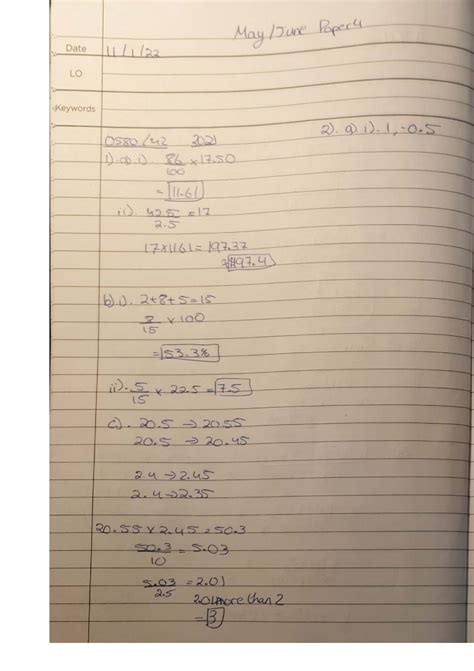 May/June Paper 4
Date 11/1/22
LO
Keywords
0580/42 2021
2). a) i). 1, -0.5
1). a). i) 86/100 × 17.50
= 11.61
ii). 42.5/2.5 = 17
17×11.61 = 197.37
$197.4
b) i). 2+8+5=15
8/15 × 100
= 53.3%
ii). 5/15 × 22.5 = 7.5
c). 20.5 → 20.55
20.5 → 20.45
2.4 → 2.45
2.4 → 2.35
20.55 × 2.45 = 50.3
50.3/10 = 5.03
5.03/2.5 = 2.01
2.01 more than 2
= 3